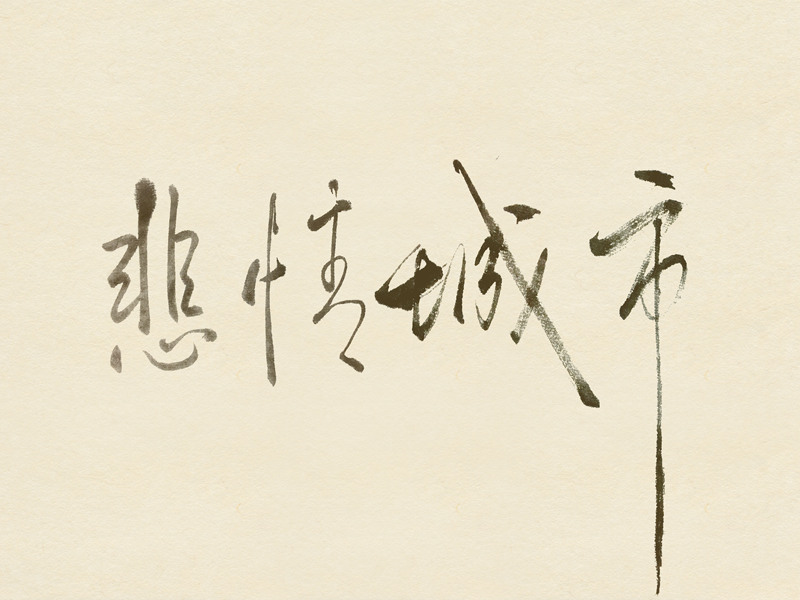 悲情城市